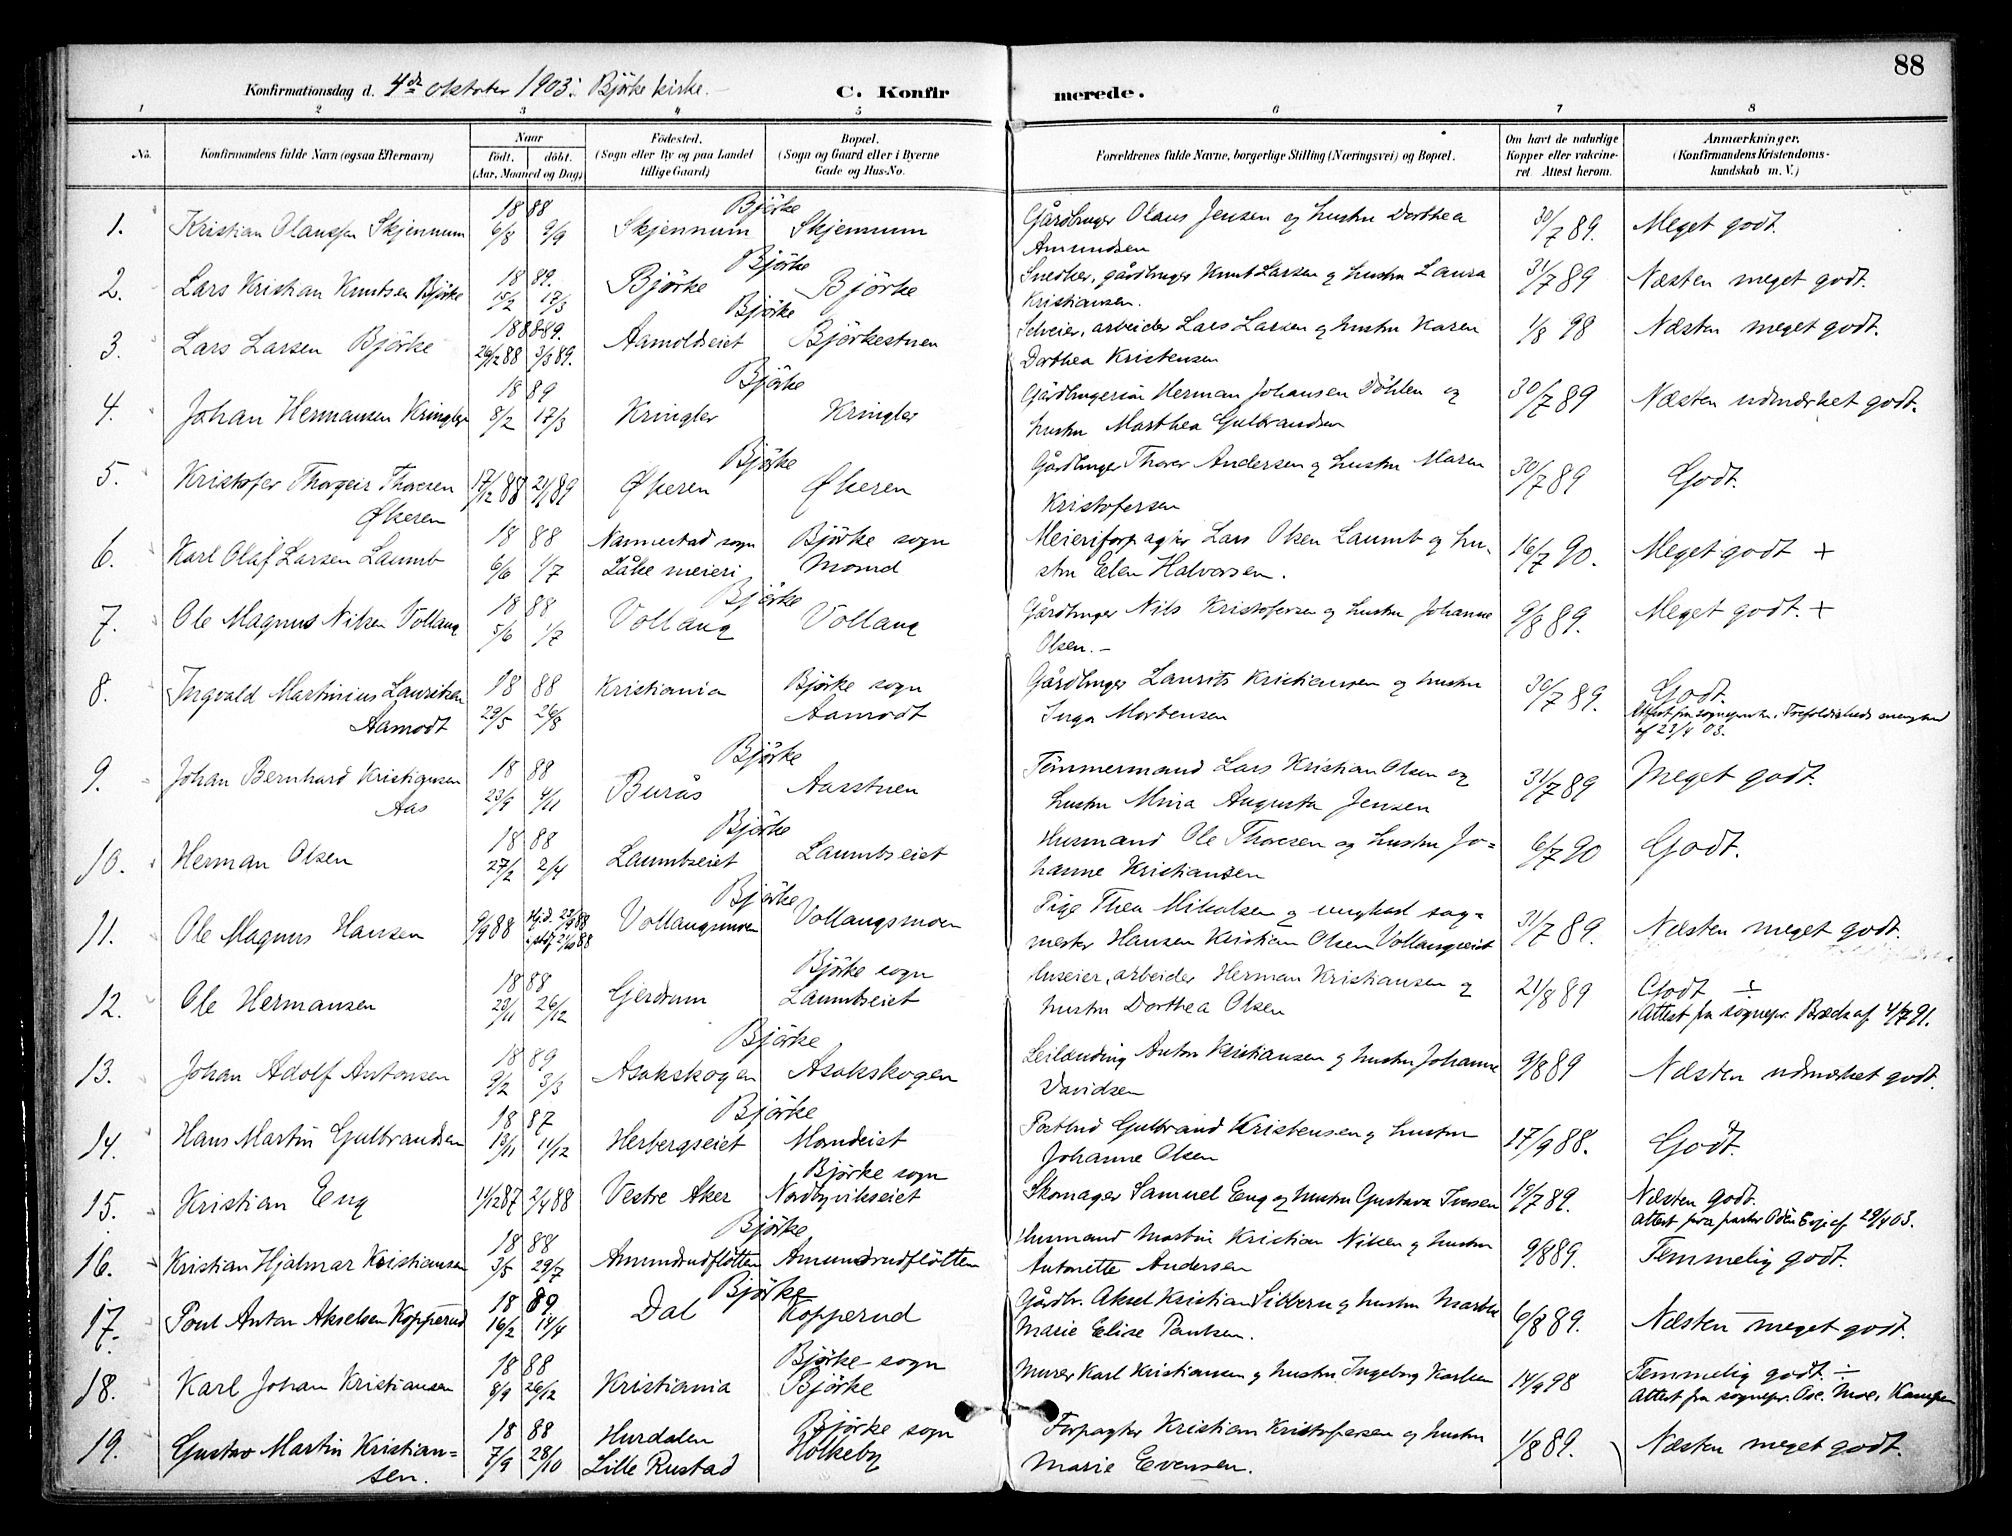 88
Konfirmationsdag d. 4de oktober 1903 i Björke kirke. C. Konfirmerede.
1 2 3 4 5 6 7 8
No. Konfirmandens fulde Navn (ogsaa Efternavn) Naar födt. döbt. (Aar, Maaned og Dag) Födested. (Sogn eller By og paa Landet tillige Gaard) Bopæl. (Sogn og Gaard eller i Byerne Gade og Hus-No. Forældrenes fulde Navne, borgerlige Stilling (Næringsvei) og Bopæl. Om havt de naturlige Kopper eller vakcineret Attest herom. Anmærkninger. (Konfirmandens Kristendomskundskab m. V.)
18 88 Björke
1. Kristian Olaussen Skjennum 6/8 9/9 Skjennum Skjennum Gårdbruger Olaus Jensen og hustru Dorthea Amundsen 30/7 89. Meget godt.
18 89. Björke
2. Lars Kristian Knutsen Björke 15/2 17/3 Björke Björke Snedker, gårdbruger Knut Larsen og hustru Laura Kristiansen. 31/7 89 Næsten meget godt.
1888-89. Björke
3. Lars Larsen Björke 26/12 88 3/3 89. Björkestuen Selveier, arbeider Lars Larsen og hustru Karen Dorthea Kristensen 1/8 98 Næsten meget godt.
18 89 Björke
4. Johan Hermansen Kringler 8/2 17/3 Kringler Kringler Gårdbrugersön Herman Johansen Döhlen og hustru Marthea Gulbrandsen 30/7 89 Næsten udmærket godt.
Björke
5. Kristofer Thorgeir Thoresen Økeren 17/12 88 21/1 89 Økeren Økeren Gårdbruger Thorer Andersen og hustru Maren Kristofersen 30/7 89 Godt.
18 88 Nannestad sogn Björke sogn
6. Karl Olaf Larsen Laumb 6/6 1/7 Låke meieri Morud Meieriforpagter Lars Olsen Laumb og hustru Elen Halvorsen. 16/7 90. Meget godt +
18 88 Björke
7. Ole Magnus Nilsen Vollaug 5/6 1/7 Vollaug Vollaug Gårdbruger Nils Kristofersen og hustru Johanne Olsen. - 9/8 89. Meget godt. +
18 88 Kristiania Björke sogn
8. Ingvald Martinius Lauritsen Aamodt 29/5 26/8 Aamodt Gårdbruger Laurits Kristiansen og hustru Inga Mortensen 30/7 89. Godt.
Attest fra sognepr. i Trefoldigheds menighed af 23/4 03.
18 88 Björke
9. Johan Bernhard Kristiansen Aas 23/9 4/11 Burås Aasstuen Tömmermand Lars Kristian Olsen og hustru Mina Augusta Jensen 31/7 89 Meget godt.
18 88 Björke
10. Herman Olsen 27/1 2/4 Laumbseiet Laumbseiet Husmand Ole Thoresen og hustru Johanne Kristiansen 6/7 90 Godt.
Björke
11. Ole Magnus Hansen 9/9 88 Hj.d. 22/9 88 21/10 88 Vollaugsmoen Vollaugsmoen Pige Thea Mikalsen og ungkarl sagmester Hansen Kristian Olsen Vollaugseiet 31/7 89. Næsten meget godt.
18 88 Björke sogn
12. Ole Hermansen 29/11 26/12 Gjerdrum Laumbseiet Huseier, arbeider Herman Kristiansen og hustru Dorthea Olsen 21/8 89 Godt ÷
Attest fra sognepr. Brede af 4/7 91.
18 89 Björke
13. Johan Adolf Antonsen 9/2 3/3 Asakskogen Asakskogen Leilænding Anton Kristiansen og hustru Johanne Davidsen 9/8 89 Næsten udmærket godt.
18 87 Björke
14. Hans Martin Gulbrandsen 13/11 11/12 Herbergseiet Moreiet Postbud Gulbrand Kristensen og hustru Johanne Olsen 17/9 88. Godt.
Björke sogn
15. Kristian Eng 11/12 87 2/4 88 Vestre Aker Nordbyvikseiet Skomager Samuel Eng og hustru Gustava Iversen 15/7 89. Næsten godt.
Attest fra pastor Odén af 29/4 03.
18 88 Björke
16. Kristian Hjalmar Kristiansen 3/5 29/7 Amundrudflötten Amundrudflötten Husmand Martin Kristian Nilsen og hustru Antonette Andersen 9/8 89. Temmelig godt.
18 89 Björke
17. Poul Anton Akselsen Kopperud 16/2 14/4 Dal Kopperud Gårdbr. Aksel Kristian Sibbern og hustru Marthe Marie Elise Paulsen. 6/8 89. Næsten meget godt.
18 88 Björke sogn
18. Karl Johan Kristiansen 8/9 26/12 Kristiania Björke Murer Karl Kristiansen og hustru Ingeborg Karlsen 14/9 98 Temmelig godt. ÷
Attest fra sognepr. Ose. Moe, Kampen
18 88 Hurdalen Björke sogn
19. Gustav Martin Kristiansen. 7/9 28/10 Lille Rustad Holkeby Forpagter Kristian Kristofersen og hustru Marie Evensen. 1/8 89. Næsten meget godt.